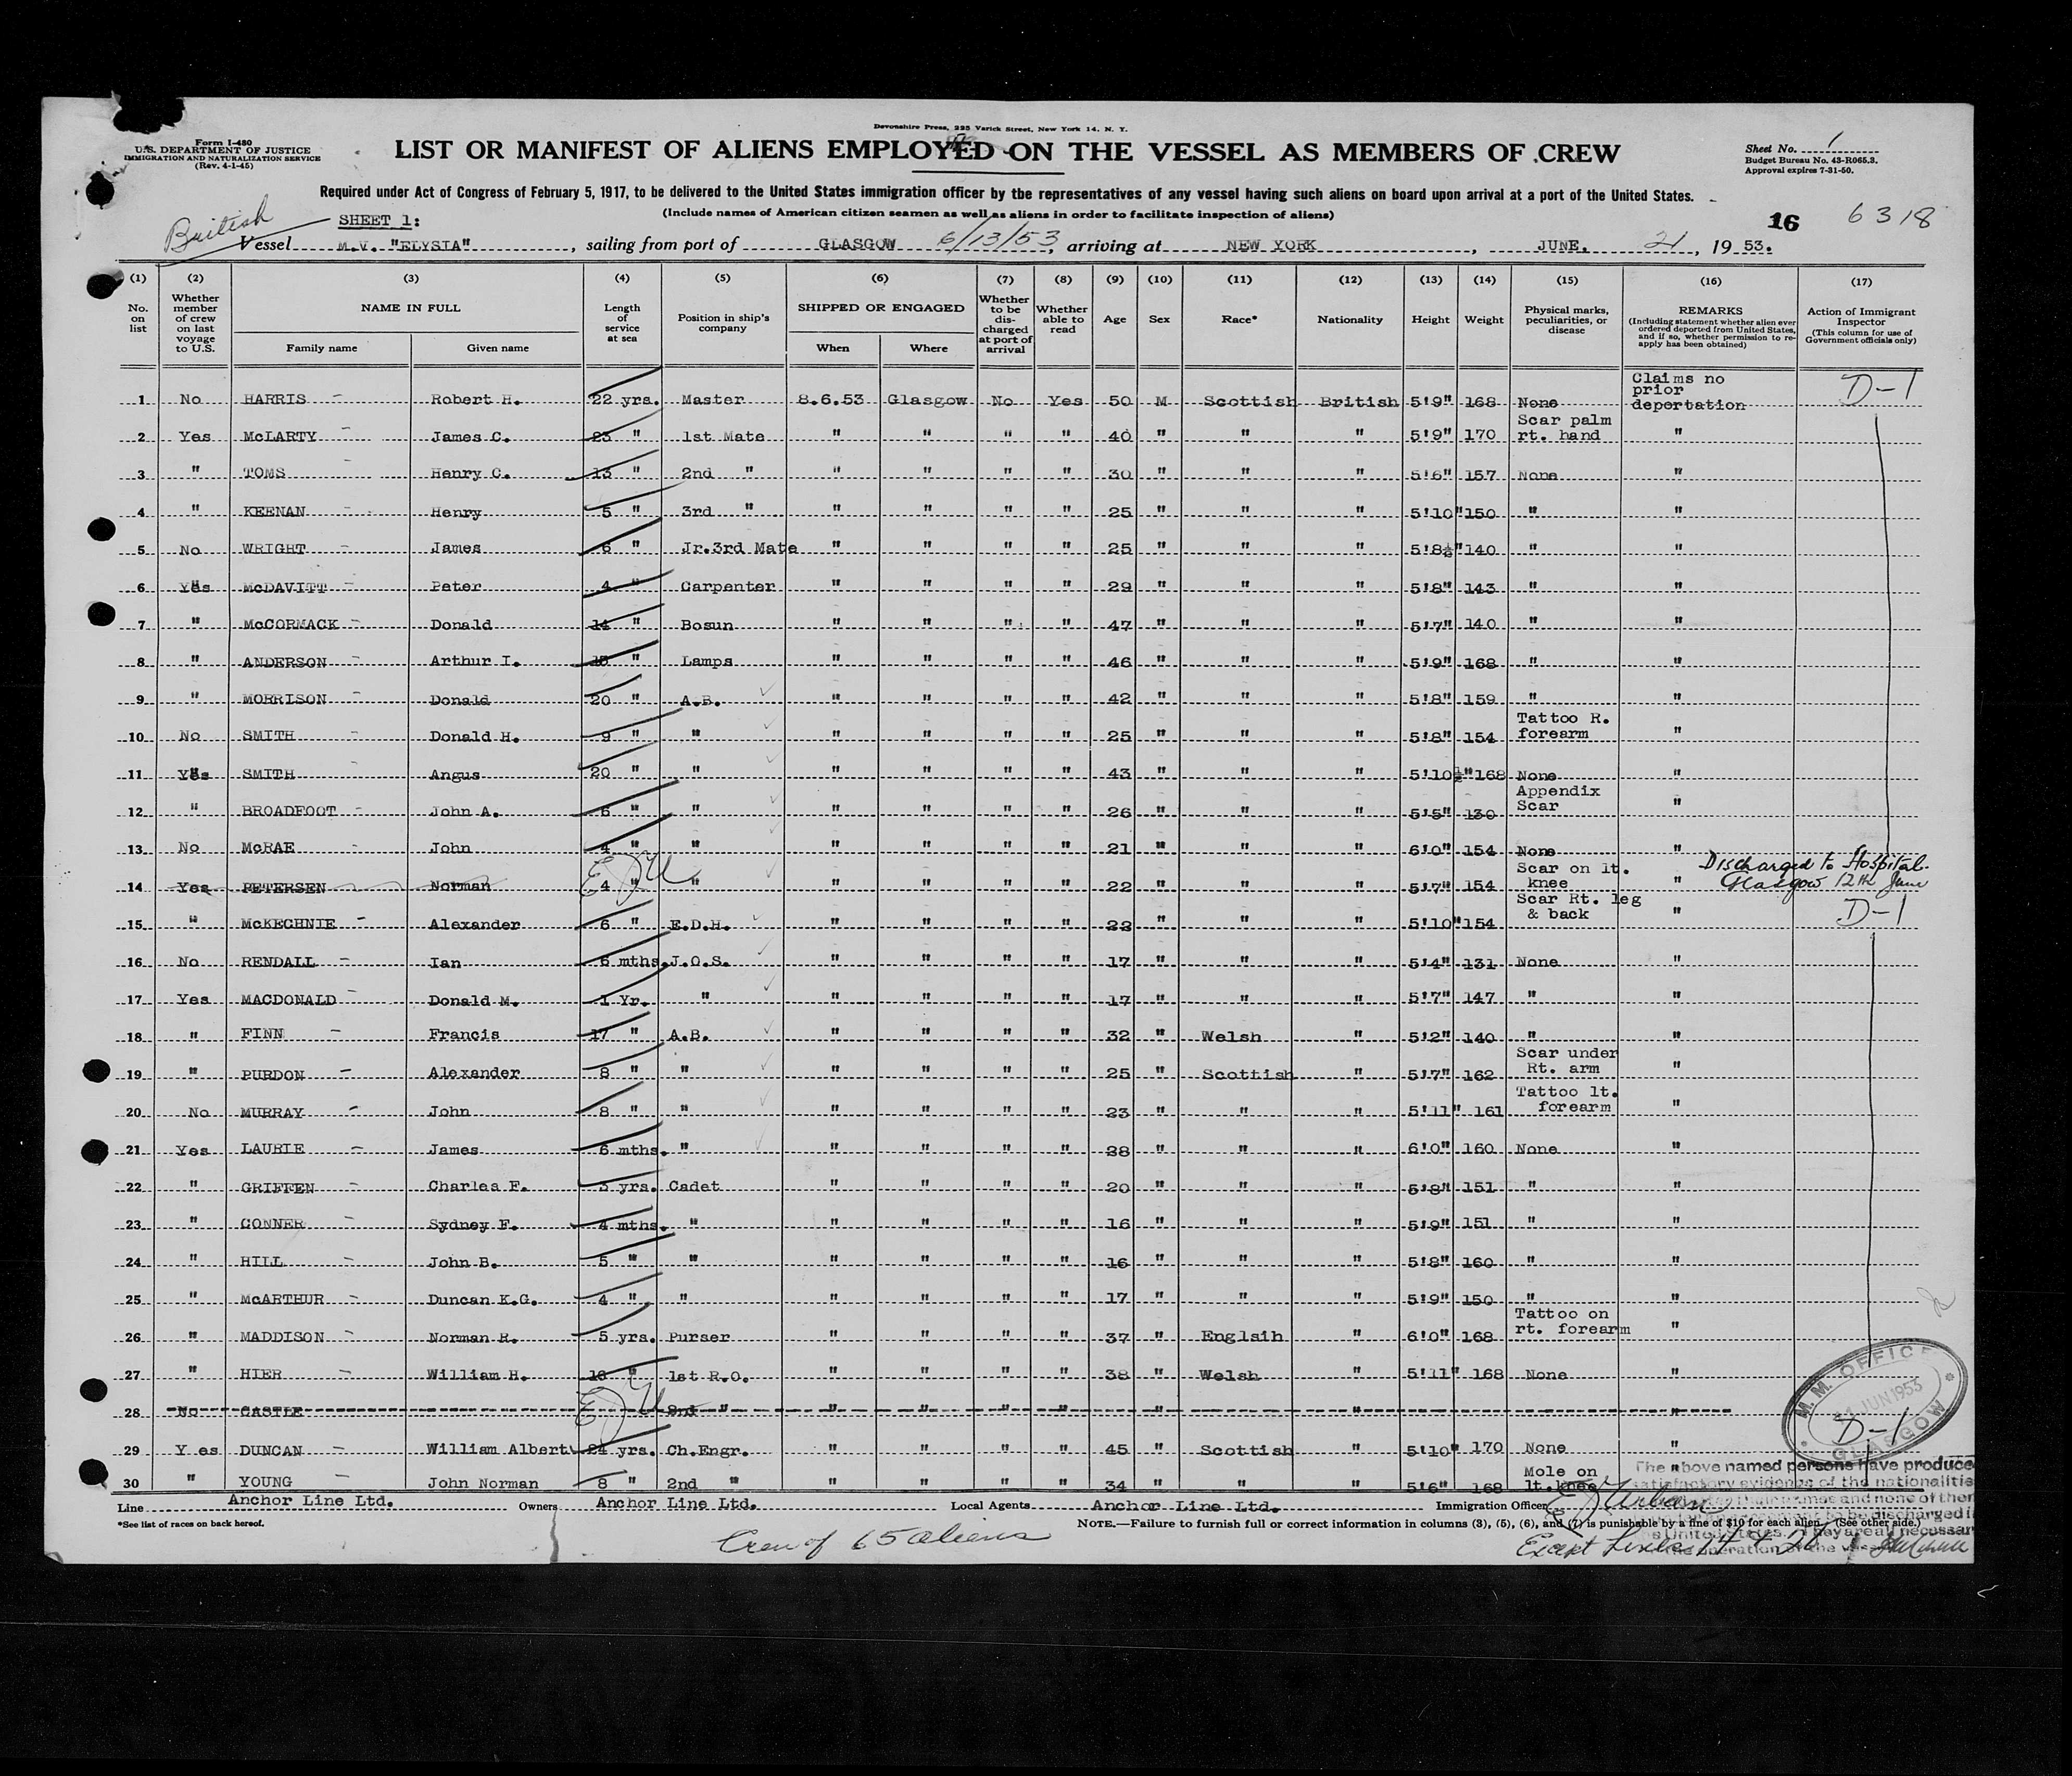 Devonshire Press, 225 Varick Street, New York 14, N. Y.
Form I-480
U.S. DEPARTMENT OF JUSTICE
IMMIGRATION AND NATURALIZATION SERVICE
(Rev. 4-1-45)
LIST OR MANIFEST OF ALIENS EMPLOYED ON THE VESSEL AS MEMBERS OF CREW
Sheet No. 1
Budget Bureau No. 43-R065.3.
Approval expires 7-31-50.
Required under Act of Congress of February 5, 1917, to be delivered to the United States immigration officer by the representatives of any vessel having such aliens on board upon arrival at a port of the United States.
(Include names of American citizen seamen as well as aliens in order to facilitate inspection of aliens)
British SHEET 1: 16 6318
Vessel M.V. "ELYSIA", sailing from port of GLASGOW 6/13/53, arriving at NEW YORK, JUNE. 21, 19 53.
(1) (2) (3) (4) (5) (6) (7) (8) (9) (10) (11) (12) (13) (14) (15) (16) (17)
No. on list
Whether member of crew on last voyage to U.S.
NAME IN FULL
Family name Given name
Length of service at sea
Position in ship's company
SHIPPED OR ENGAGED
When Where
Whether to be discharged at port of arrival
Whether able to read
Age Sex Race* Nationality Height Weight
Physical marks, peculiarities, or disease
REMARKS
(Including statement whether alien ever ordered deported from United States, and if so, whether permission to reapply has been obtained)
Action of Immigrant Inspector
(This column for use of Government officials only)
1 No HARRIS Robert H. 22 yrs. Master 8.6.53 Glasgow No Yes 50 M Scottish British 5'9" 168 None Claims no prior deportation D-1
2 Yes McLARTY James C. 23 " 1st Mate " " " " 40 " " " 5'9" 170 Scar palm rt. hand "
3 " TOMS Henry C. 13 " 2nd " " " " " 30 " " " 5'6" 157 None "
4 " KEENAN Henry 5 " 3rd " " " " " 25 " " " 5'10" 150 " "
5 No WRIGHT James 6 " Jr.3rd Mate " " " " 25 " " " 5'8½" 140 " "
6 Yes McDAVITT Peter 4 " Carpenter " " " " 29 " " " 5'8" 143 " "
7 " McCORMACK Donald 14 " Bosun " " " " 47 " " " 5'7" 140 " "
8 " ANDERSON Arthur I. " Lamps " " " " 46 " " " 5'9" 168 " "
9 " MORRISON Donald 20 " A.B. " " " " 42 " " " 5'8" 159 " "
10 No SMITH Donald H. 9 " " " " " " 25 " " " 5'8" 154 Tattoo R. forearm "
11 Yes SMITH Angus 20 " " " " " " 43 " " " 5'10½" 168 None "
12 " BROADFOOT John A. 6 " " " " " " 26 " " " 5'5" 130 Appendix Scar "
13 No McRAE John 4 " " " " " " 21 " " " 6'0" 154 None "
14 Yes PETERSEN Norman 4 " " " " " " 22 " " " 5'7" 154 Scar on lt. knee " Discharged to Hospital. Glasgow 12th June
15 " McKECHNIE Alexander 6 " E.D.H. " " " " 22 " " " 5'10" 154 Scar Rt. leg & back " D-1
16 No RENDALL Ian 6 mths. J.O.S. " " " " 17 " " " 5'4" 131 None "
17 Yes MACDONALD Donald M. 1 Yr. " " " " " 17 " " " 5'7" 147 " "
18 " FINN Francis 17 " A.B. " " " " 32 " Welsh " 5'2" 140 " "
19 " PURDON Alexander 8 " " " " " " 25 " Scottish " 5'7" 162 Scar under Rt. arm "
20 No MURRAY John 8 " " " " " " 23 " " " 5'11" 161 Tattoo lt. forearm "
21 Yes LAURIE James 6 mths. " " " " " 28 " " " 6'0" 160 None "
22 " GRIFFEN Charles F. 3 yrs. Cadet " " " " 20 " " " 5'8" 151 " "
23 " CONNER Sydney F. 4 mths. " " " " " 16 " " " 5'9" 151 " "
24 " HILL John B. 5 " " " " " " 16 " " " 5'8" 160 " "
25 " McARTHUR Duncan K.G. 4 " " " " " " 17 " " " 5'9" 150 " "
26 " MADDISON Norman R. 5 yrs. Purser " " " " 37 " Englsih " 6'0" 168 Tattoo on rt. forearm "
27 " HIER William H. 18 " 1st R.O. " " " " 38 " Welsh " 5'11" 168 None "
28 No CASTLE 2nd " " " " " " "
29 Y es DUNCAN William Albert 24 yrs. Ch.Engr. " " " " 45 " Scottish " 5'10" 170 None " D-1
30 " YOUNG John Norman 8 " 2nd " " " " " 34 " " " 5'6" 168 Mole on lt.knee "
M. M. OFFICE
JUN 1953
GLASGOW
The above named persons have produce
satisfactory evidence of the nationalitie
and none of then
to be discharged i
United States. They are all necessar
the operation of the
Line Anchor Line Ltd. Owners Anchor Line Ltd. Local Agents Anchor Line Ltd. Immigration Officer E J Urban
*See list of races on back hereof.
NOTE.—Failure to furnish full or correct information in columns (3), (5), (6), and (7) is punishable by a fine of $10 for each alien. (See other side.)
Crew of 65 aliens
Except Lines 14 & 28